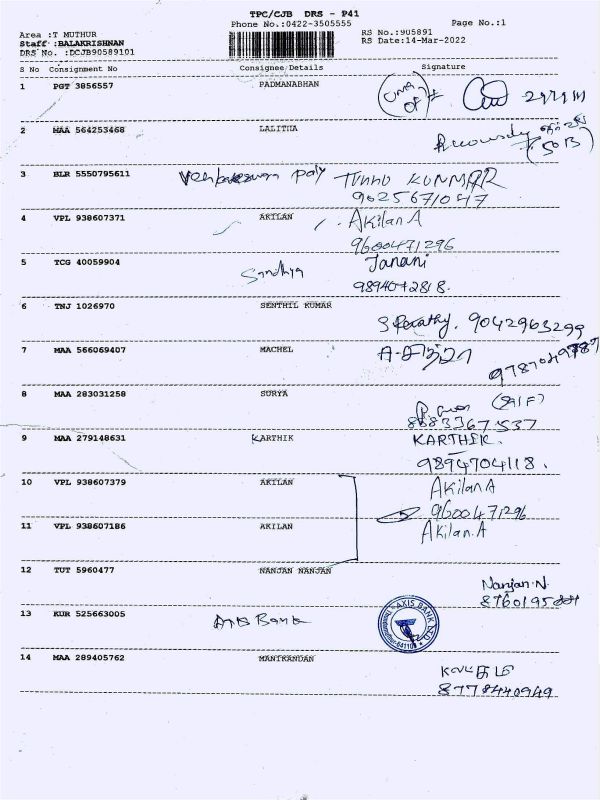 TPC/CJB DRS - P41
Phone No.:0422-3505555
Page No.:1
Area :T MUTHUR
Staff :BALAKRISHNAN
DRS No. :DCJB90589101
RS No.:905891
RS Date:14-Mar-2022
S No Consignment No Consignee Details Signature
1 PGT 3856557 PADMANABHAN
2 MAA 564253468 LALITHA
3 BLR 5550795611 poly KUMMAR
9025671047
4 VPL 938607371 AKILAN Akilan A
9600471296
5 TCG 40059904 Sandhya Janani
9894042818.
6 TNJ 1026970 SENTHIL KUMAR
9042963299
7 MAA 566069407 MACHEL
9787049787
8 MAA 283031258 SURYA
8883367537
9 MAA 279148631 KARTHIK KARTHIK.
9894704118.
10 VPL 938607379 AKILAN Akilan A
9600471296
11 VPL 938607186 AKILAN Akilan.A
12 TUT 5960477 NANJAN NANJAN
Nanjan.N.
13 KUR 525663005 Axis Bank AXIS BANK LTD
14 MAA 289405762 MANIKANDAN
8778440949